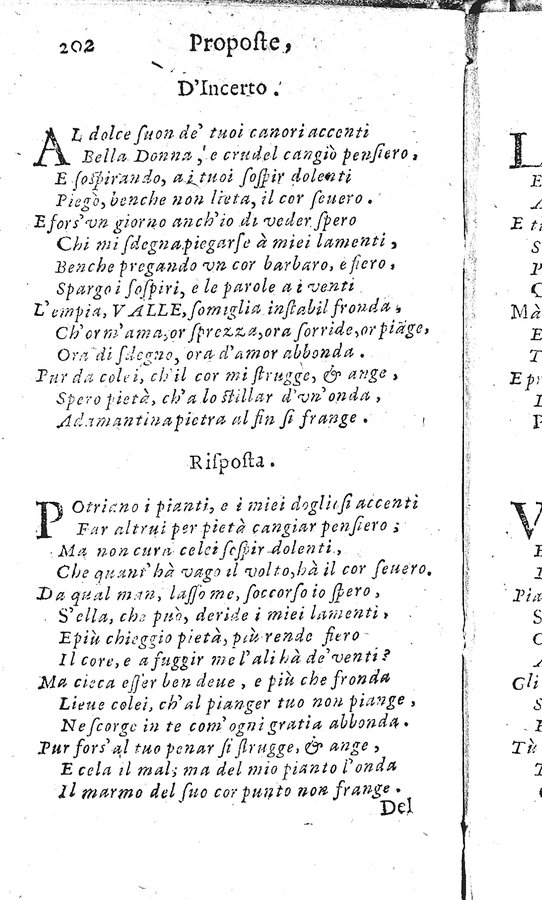 202 Proposte,
D'Incerto.
AL dolce suon de' tuoi canori accenti
Bella Donna, e crudel cangiò pensiero,
E sospirando, a i tuoi sospir dolenti
Piegò, benche non lieta, il cor seuero.
E fors' vn giorno anch'io di veder spero
Chi mi sdegna piegarse à miei lamenti,
Benche pregando vn cor barbaro, e fiero,
Spargo i sospiri, e le parole a i venti
L'empia, VALLE, somiglia instabil fronda,
Ch'or m'ama, or sprezza, ora sorride, or piãge,
Ora di sdegno, ora d'amor abbonda.
Pur da colei, ch'il cor mi strugge, & ange,
Spero pietà, ch'a lo stillar d'vn'onda,
Adamantina pietra al fin si frange.
Risposta.
POtriano i pianti, e i miei dogliosi accenti
Far altrui per pietà cangiar pensiero;
Ma non cura colei sospir dolenti,
Che quant' hà vago il volto, hà il cor seuero.
Da qual man, lasso me, soccorso io spero,
S'ella, che può, deride i miei lamenti,
E più chieggio pietà, più rende fiero
Il core, e a fuggir me l'ali hà de' venti?
Ma cieca esser ben deue, e più che fronda
Lieue colei, ch'al pianger tuo non piange,
Ne scorge in te com'ogni gratia abbonda.
Pur fors' al tuo penar si strugge, & ange,
E cela il mal; ma del mio pianto l'onda
Il marmo del suo cor punto non frange.
Del